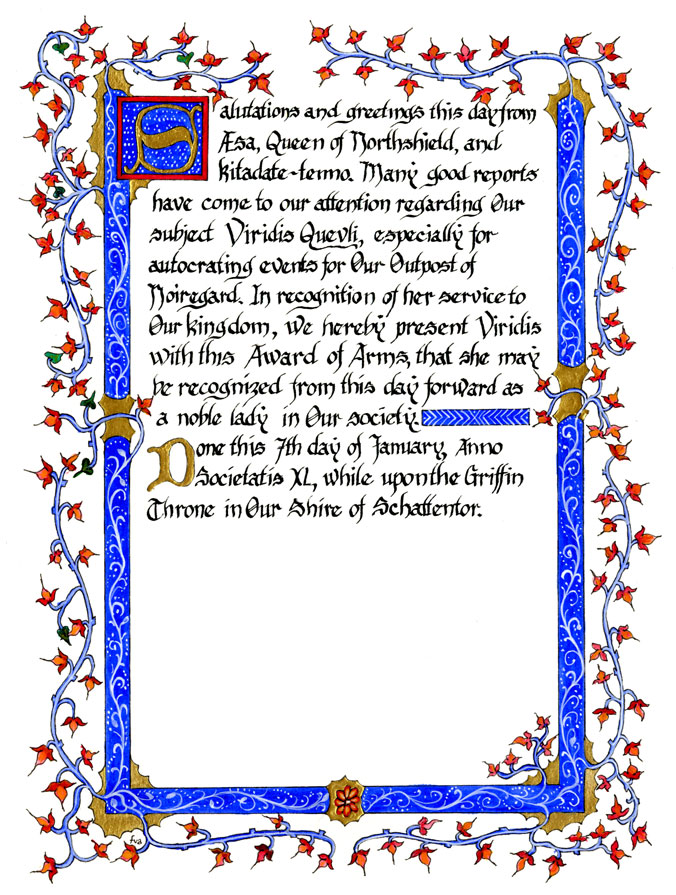 Salutations and greetings this day from
Æsa, Queen of Northshield, and
Kitadate-tenno. Many good reports
have come to our attention regarding Our
subject Viridis Quevli, especially for
autocrating events for Our Outpost of
Noiregard. In recognition of her service to
Our kingdom, We hereby present Viridis
with this Award of Arms, that she may
be recognized from this day forward as
a noble lady in Our society.
Done this 7th day of January, Anno
Societatis XL, while upon the Griffin
Throne in Our Shire of Schattentor.
fva